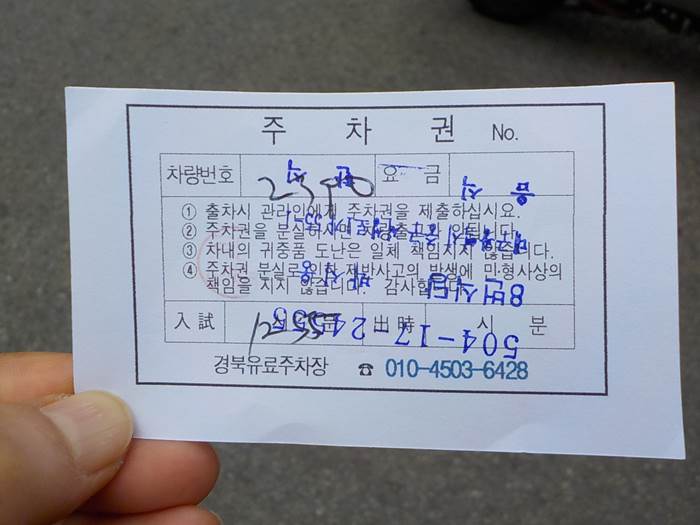 주 차 권 No.
차량번호 2310 요 금
① 출차시 관리인에게 주차권을 제출하십시요.
② 주차권을 분실하시면 차량출고가 안됩니다.
③ 차내의 귀중품 도난은 일체 책임지지 않습니다.
④ 주차권 분실로 인한 제반사고의 발생에 민·형사상의
책임을 지지 않습니다. 감사합니다.
8번식당
入試 시 분 出時 시 분
504-17-24555
경북유료주차장 ☎ 010-4503-6428